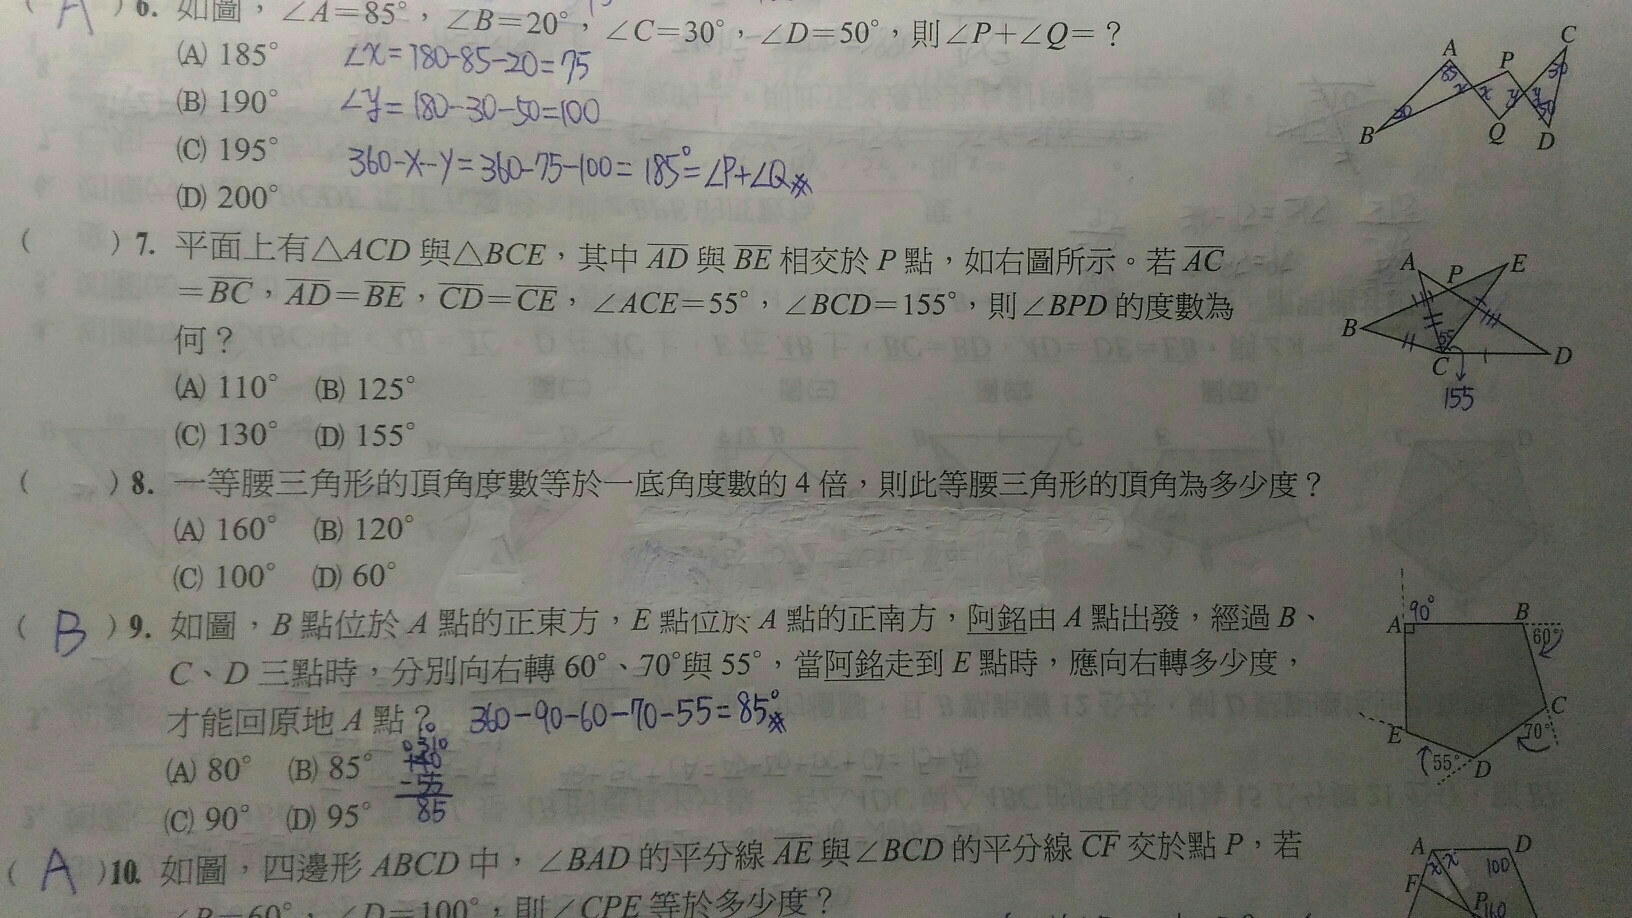 ( A ) 6. 如圖，∠A＝85°，∠B＝20°，∠C＝30°，∠D＝50°，則∠P+∠Q＝？
(A) 185°
∠x=180-85-20=75
(B) 190°
∠y=180-30-50=100
(C) 195°
360-x-y=360-75-100=185°=∠P+∠Q
(D) 200°
A
B
P
Q
C
D
85
20
x
x
y
y
30
50
( ) 7. 平面上有△ACD 與△BCE，其中 AD 與 BE 相交於 P 點，如右圖所示。若 AC
＝BC，AD＝BE，CD＝CE，∠ACE＝55°，∠BCD＝155°，則∠BPD 的度數為
何？
(A) 110° (B) 125°
(C) 130° (D) 155°
A
P
E
B
C
D
55
155
( ) 8. 一等腰三角形的頂角度數等於一底角度數的 4 倍，則此等腰三角形的頂角為多少度？
(A) 160° (B) 120°
(C) 100° (D) 60°
( B ) 9. 如圖，B 點位於 A 點的正東方，E 點位於 A 點的正南方，阿銘由 A 點出發，經過 B、
C、D 三點時，分別向右轉 60°、70°與 55°，當阿銘走到 E 點時，應向右轉多少度，
才能回原地 A 點？ 360-90-60-70-55=85°
(A) 80° (B) 85°
(C) 90° (D) 95°
-55
85
A
90°
B
60°
C
70°
D
55°
E
( A )10. 如圖，四邊形 ABCD 中，∠BAD 的平分線 AE 與∠BCD 的平分線 CF 交於點 P，若
∠B＝60°，∠D＝100°，則∠CPE 等於多少度？
A
D
x
x
100
F
P